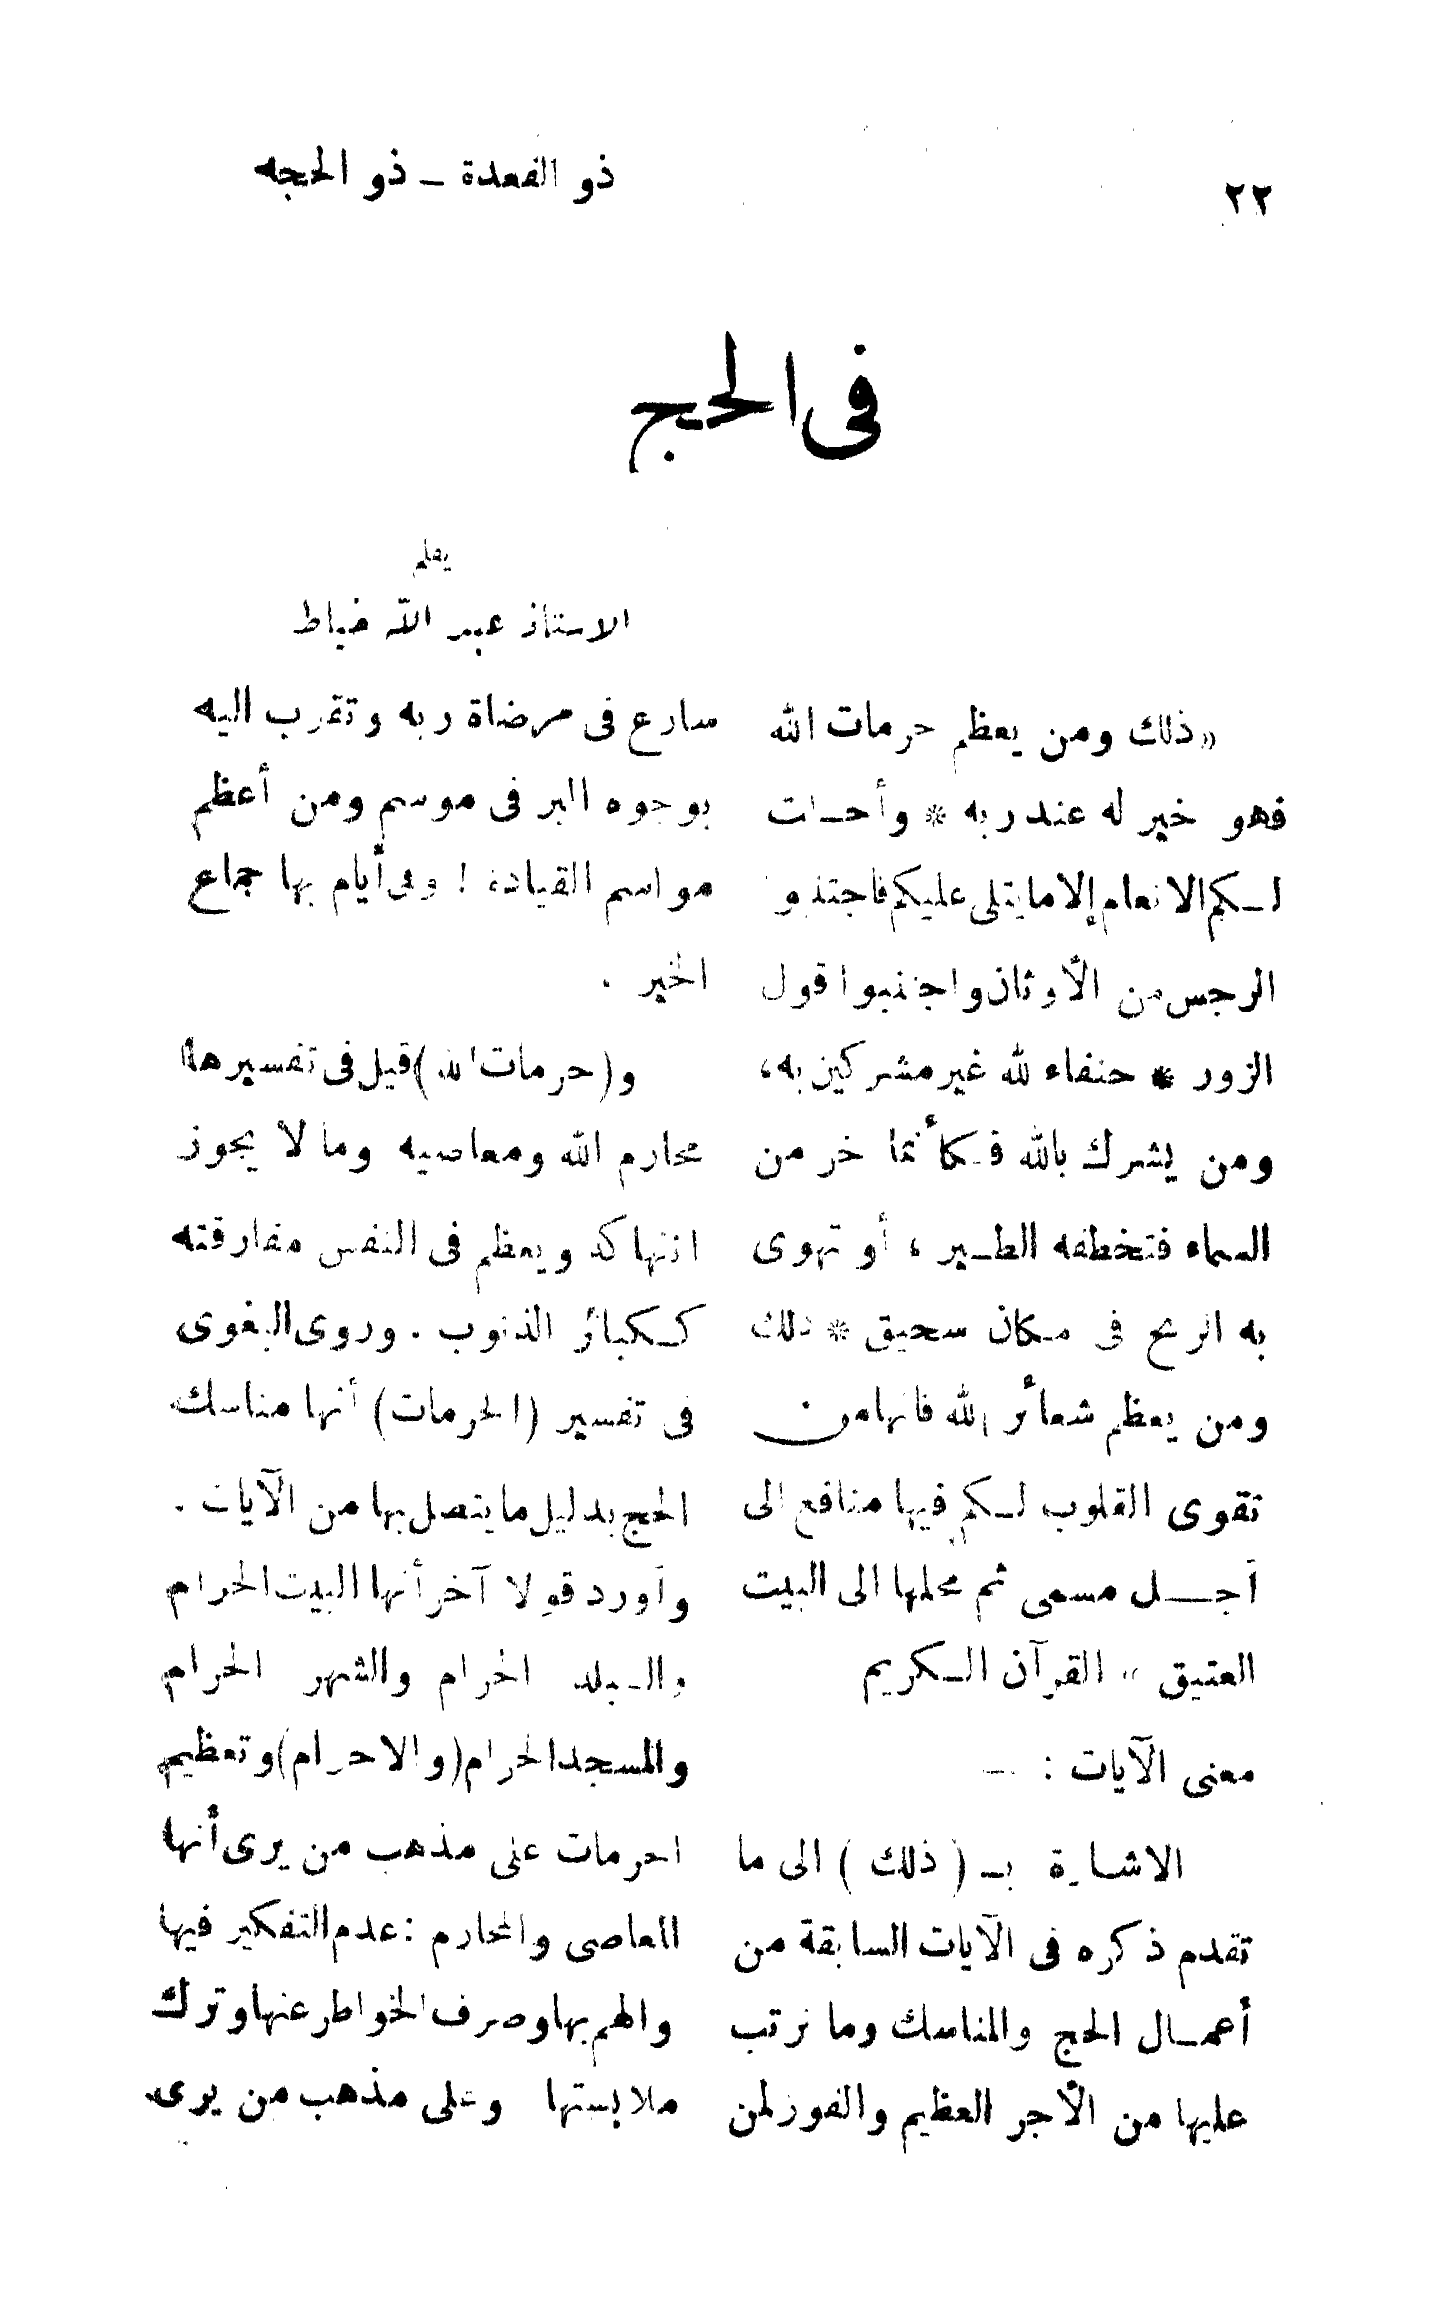 ٢٢
ذو القعدة – ذو الحجه
فى الحج
بقلم
الاستاذ عبد الله خياط
«ذلك ومن يعظم حرمات الله
فهو خير له عند ربه * وأحلت
لـكم الانعام إلا ما يتلى عليكم فاجتنبو
الرجس من الأوثان واجتنبوا قول
الزور * حنفاء لله غير مشركين به،
ومن يشرك بالله فـكأنما خر من
السماء فتخطفه الطـير ، أو تهوى
به الريح فى مكان سحيق * ذلك
ومن يعظم شعائر الله فانها من
تقوى القلوب لـكم فيها منافع الى
أجـــل مسمى ثم محلها الى البيت
العتيق » القرآن الـكريم
معنى الآيات : —
الاشارة بـ ( ذلك ) الى ما
تقدم ذكره فى الآيات السابقة من
أعمـال الحج والمناسك وما ترتب
عليها من الأجر العظيم والفوز لمن
سارع فى مرضاة ربه وتقرب اليه
بوجوه البر فى موسم ومن أعظم
مواسم القيادة ! وفى أيام بها جماع
الخير .
و(حرمات الله) قيل فى تفسيرها
محارم الله ومعاصيه وما لا يجوز
انتهاكه ويعظم فى النفس مفارقته
كـكبائر الذنوب . وروى البغوى
فى تفسير (الحرمات) أنها مناسك
الحج بدليل ما يتصل بها من الآيات .
وأورد قولا آخر أنها البيت الحرام
والـبلد الحرام والشهر الحرام
والمسجد الحرام (والاحرام) وتعظيم
احرمات على مذهب من يرى أنها
المعاصى والمحارم : عدم التفكير فيها
والهم بها وصرف الخواطر عنها وترك
ملابستها وعلى مذهب من يرى